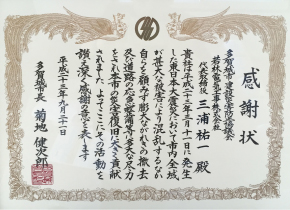 感謝状
多賀城市建設災害防止協議会
若林電気工事株式会社
代表取締役 三浦祐一 殿
貴社は平成二十三年三月十一日に発生
した東日本大震災において市内全域
が甚大な被害により混乱するなか
自らを顧みず膨大ながれきの撤去
及び道路の応急整備等に多大な尽力
をされ本市の災害復旧に大きく貢献
されました よってここにその活動を
讃え深く感謝の意を表します
平成二十三年九月二十一日
多賀城市長 菊地健次郎